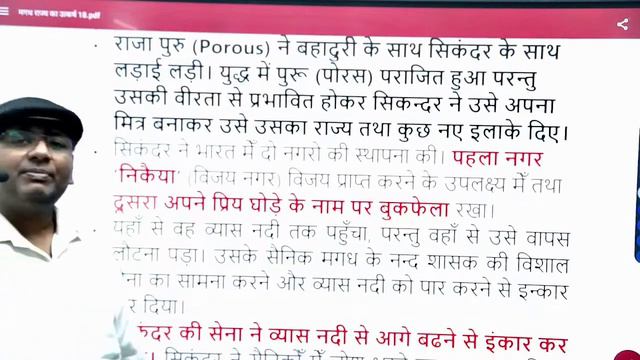 मगध राज्य का उत्कर्ष 18.pdf
• राजा पुरु (Porous) ने बहादुरी के साथ सिकंदर के साथ
लड़ाई लड़ी। युद्ध में पुरू (पोरस) पराजित हुआ परन्तु
उसकी वीरता से प्रभावित होकर सिकन्दर ने उसे अपना
मित्र बनाकर उसे उसका राज्य तथा कुछ नए इलाके दिए।
• सिकंदर ने भारत में दो नगरो की स्थापना की। पहला नगर
'निकैया' (विजय नगर) विजय प्राप्त करने के उपलक्ष्य में तथा
दूसरा अपने प्रिय घोड़े के नाम पर बुकफेला रखा।
• यहाँ से वह व्यास नदी तक पहुँचा, परन्तु वहाँ से उसे वापस
लौटना पड़ा। उसके सैनिक मगध के नन्द शासक की विशाल
का सामना करने और व्यास नदी को पार करने से इन्कार
र दिया।
की सेना ने व्यास नदी से आगे बढने से इंकार कर